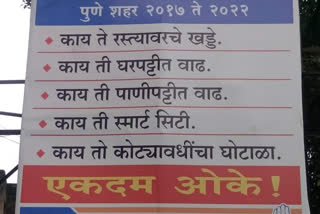 पुणे शहर २०१७ ते २०२२
काय ते रस्त्यावरचे खड्डे.
काय ती घरपट्टीत वाढ.
काय ती पाणीपट्टीत वाढ.
काय ती स्मार्ट सिटी.
काय तो कोट्यावधींचा घोटाळा.
एकदम ओके!